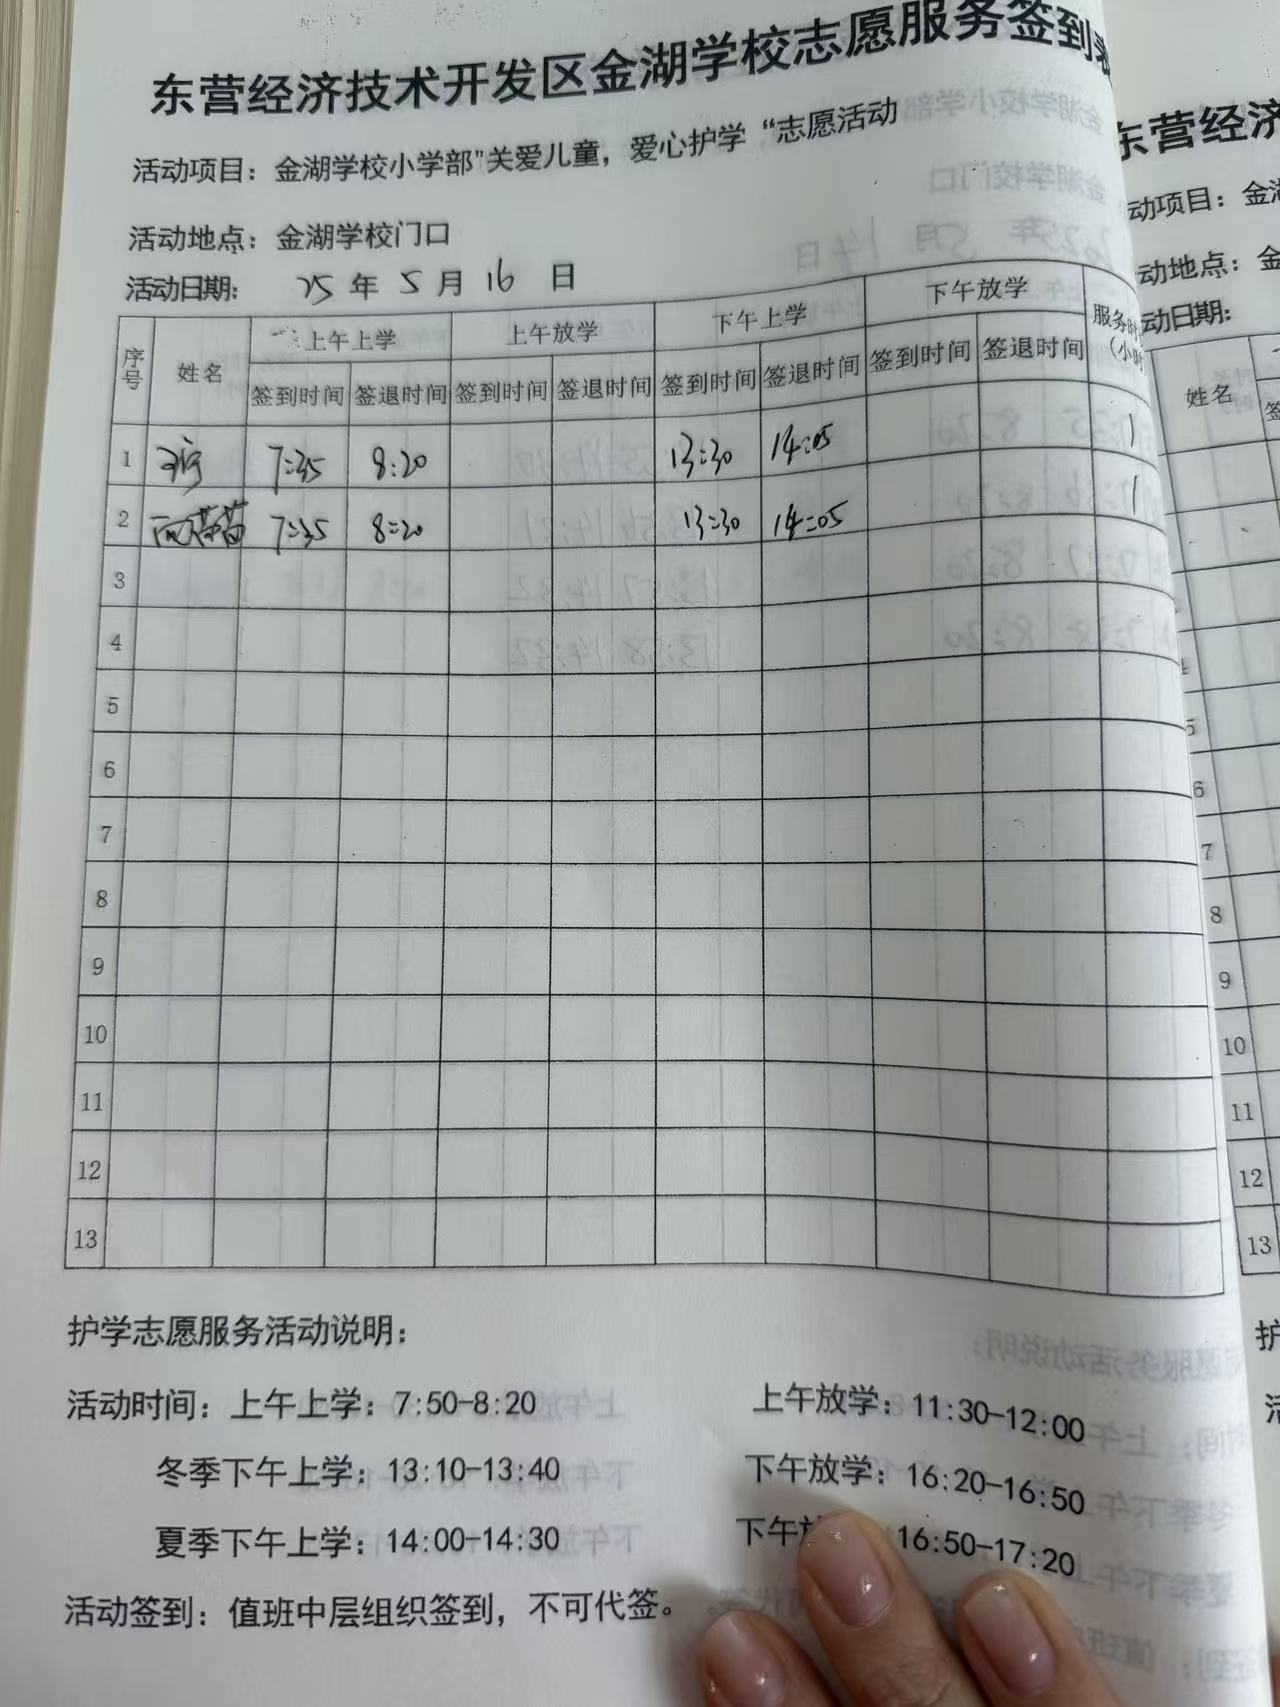 东营经济技术开发区金湖学校志愿服务签到表
活动项目：金湖学校小学部"关爱儿童，爱心护学“志愿活动
活动地点：金湖学校门口
活动日期： 25 年 5 月 16 日
序号 姓名 上午上学 上午放学 下午上学 下午放学 服务时 (小时
签到时间 签退时间 签到时间 签退时间 签到时间 签退时间 签到时间 签退时间
1 7:35 8:20 13:30 14:05 1
2 7:35 8:20 13:30 14:05 1
3
4
5
6
7
8
9
10
11
12
13
护学志愿服务活动说明：
活动时间：上午上学：7:50-8:20 上午放学：11:30-12:00
冬季下午上学：13:10-13:40 下午放学：16:20-16:50
夏季下午上学：14:00-14:30 下午放 16:50-17:20
活动签到：值班中层组织签到，不可代签。
东营经济
动项目：金
动地点：金
动日期：
姓名
5
6
7
8
9
10
11
12
13
护
活